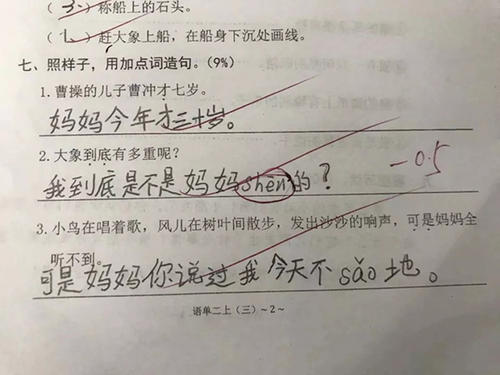 （3）称船上的石头。
（1）赶大象上船，在船身下沉处画线。
七、照样子，用加点词造句。（9%）
1.曹操的儿子曹冲才七岁。
妈妈今年才三十岁。
2.大象到底有多重呢？
我到底是不是妈妈shēn的？
-0.5
3.小鸟在唱着歌，风儿在树叶间散步，发出沙沙的响声，可是妈妈全
听不到。
可是妈妈你说过我今天不sǎo地。
语单二上（三）～2～